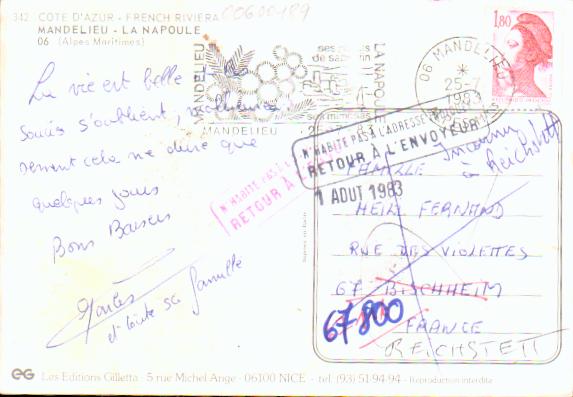 342 COTE D'AZUR - FRENCH RIVIERA
CC600489
MANDELIEU - LA NAPOULE
06 (Alpes Maritimes)
La vie est belle les
soucis s'oublient, malheureu
sement cela ne dure que
quelques jours
Bons Baisers
et toute sa famille
MANDELIEU
MANDELIEU
ses
de sa
LA NAPOU
06 MANDELIEU
25-7
1983
1,80
N'HABITE PAS À L'ADRESSE
RETOUR À L'ENVOYEUR
N'HABITE PAS À L
RETOUR À L'E
1 AOUT 1983
Inconnu
à Reichstett
FAMILLE
HEIL FERNAND
RUE DES VIOLETTES
67 BISCHHEIM
67800
FRANCE
REICHSTETT
EG Les Editions Gilletta - 5 rue Michel Ange - 06100 NICE - tel. (93) 51-94-94 - Reproduction interdite